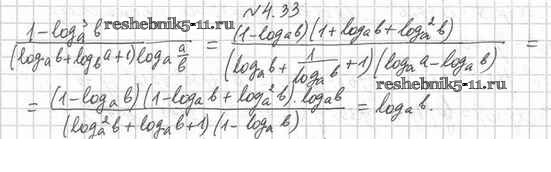 №4.33
reshebnik5-11.ru
\frac{1-\log_a^3 b}{(\log_a b+\log_b a+1)\log_a \frac{a}{b}} = \frac{(1-\log_a b)(1+\log_a b+\log_a^2 b)}{(\log_a b+\frac{1}{\log_a b}+1)(\log_a a-\log_a b)} =
reshebnik5-11.ru
= \frac{(1-\log_a b)(1-\log_a b+\log_a^2 b)\cdot\log_a b}{(\log_a^2 b+\log_a b+1)(1-\log_a b)} = \log_a b.